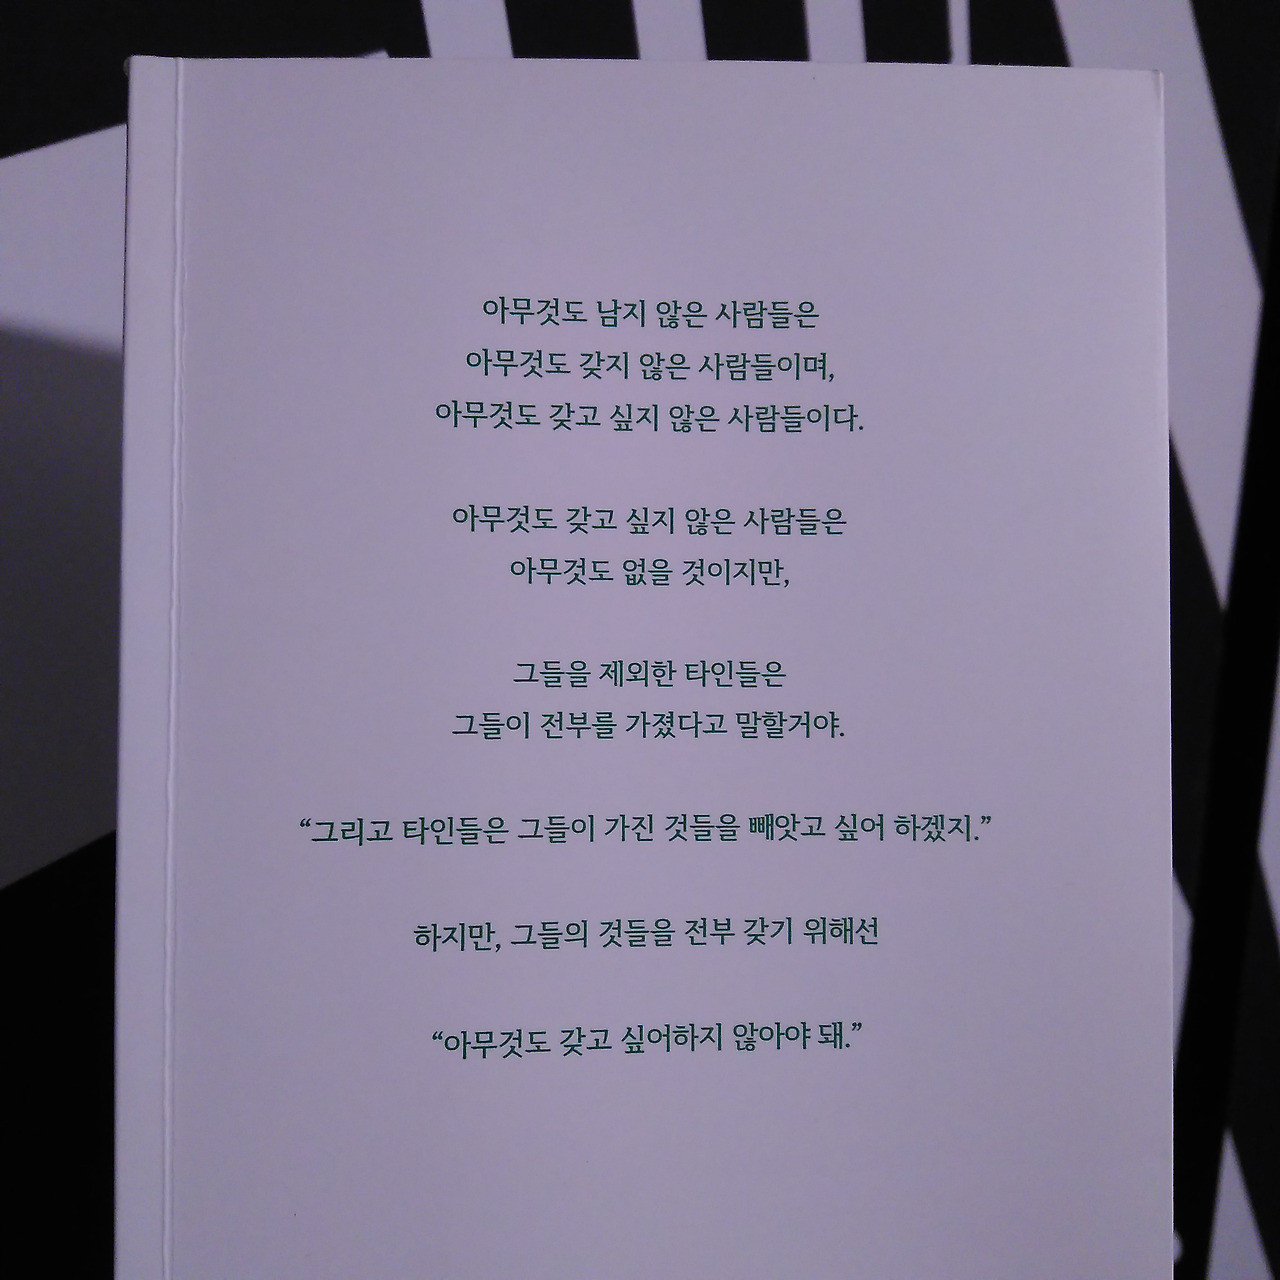 아무것도 남지 않은 사람들은
아무것도 갖지 않은 사람들이며,
아무것도 갖고 싶지 않은 사람들이다.
아무것도 갖고 싶지 않은 사람들은
아무것도 없을 것이지만,
그들을 제외한 타인들은
그들이 전부를 가졌다고 말할거야.
“그리고 타인들은 그들이 가진 것들을 빼앗고 싶어 하겠지.”
하지만, 그들의 것들을 전부 갖기 위해선
“아무것도 갖고 싶어하지 않아야 돼.”